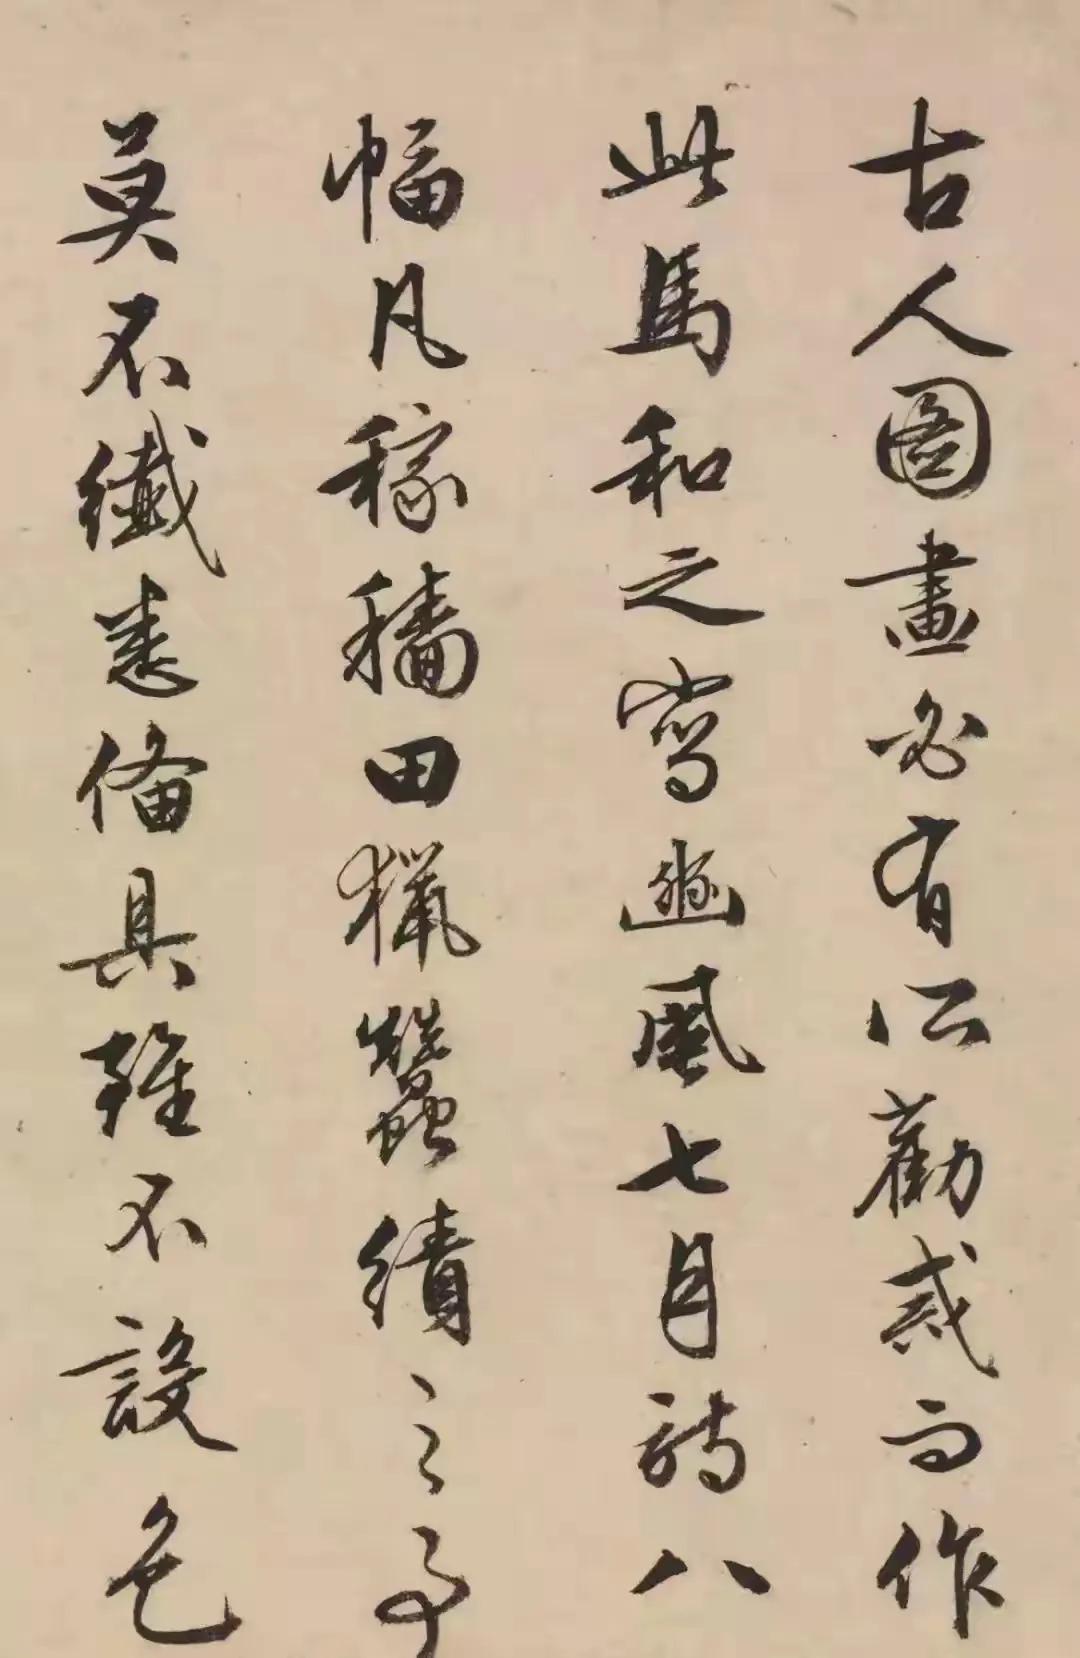 古人图畫必有所勸戒而作
此馬和之寫豳風七月詩八
幅凡稼穡田獵蠶績之事
莫不纖悉俻具雖不設色